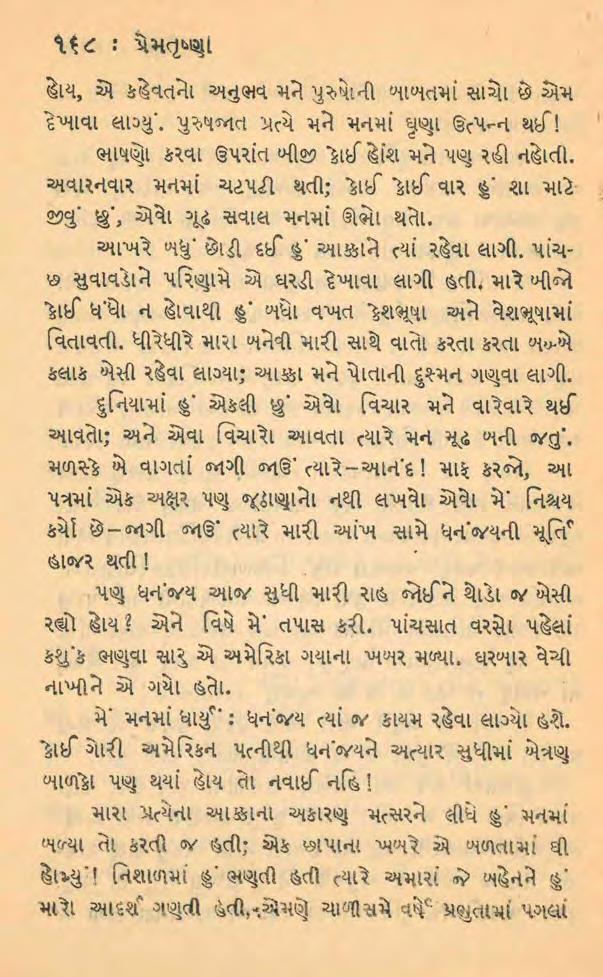 ૧૬૮ : પ્રેમતૃષ્ણા
હોય, એ કહેવતનો અનુભવ મને પુરુષોની બાબતમાં સાચો છે એમ
દેખાવા લાગ્યું. પુરુષજાત પ્રત્યે મને મનમાં ઘૃણા ઉત્પન્ન થઈ!
ભાષણો કરવા ઉપરાંત બીજી કોઈ હોંશ મને પણ રહી નહોતી.
અવારનવાર મનમાં ચટપટી થતી; કોઈ કોઈ વાર હું શા માટે
જીવું છું, એવો ગૂઢ સવાલ મનમાં ઊભો થતો.
આખરે બધું છોડી દઈ હું આક્કાને ત્યાં રહેવા લાગી. પાંચ-
છ સુવાવડોને પરિણામે એ ઘરડી દેખાવા લાગી હતી. મારે બીજો
કોઈ ધંધો ન હોવાથી હું બધો વખત કેશભૂષા અને વેશભૂષામાં
વિતાવતી. ધીરેધીરે મારા બનેવી મારી સાથે વાતો કરતા કરતા બબ્બે
કલાક બેસી રહેવા લાગ્યા; આક્કા મને પોતાની દુશ્મન ગણવા લાગી.
દુનિયામાં હું એકલી છું એવો વિચાર મને વારેવારે થઈ
આવતો; અને એવા વિચારો આવતા ત્યારે મન મૂઢ બની જતું.
મળસ્કે બે વાગતાં જાગી જાઉં ત્યારે–આનંદ! માફ કરજો, આ
પત્રમાં એક અક્ષર પણ જૂઠાણાનો નથી લખવો એવો મેં નિશ્ચય
કર્યો છે–જાગી જાઉં ત્યારે મારી આંખ સામે ધનંજયની મૂર્તિ
હાજર થતી!
પણ ધનંજય આજ સુધી મારી રાહ જોઈને થોડો જ બેસી
રહ્યો હોય? એને વિષે મેં તપાસ કરી. પાંચસાત વરસો પહેલાં
કશુંક ભણવા સારુ એ અમેરિકા ગયાના ખબર મળ્યા. ઘરબાર વેચી
નાખીને એ ગયો હતો.
મેં મનમાં ધાર્યું: ધનંજય ત્યાં જ કાયમ રહેવા લાગ્યો હશે.
કોઈ ગોરી અમેરિકન પત્નીથી ધનંજયને અત્યાર સુધીમાં બેત્રણ
બાળકો પણ થયાં હોય તો નવાઈ નહિ!
મારા પ્રત્યેના આક્કાના અકારણ મત્સરને લીધે હું મનમાં
બળ્યા તો કરતી જ હતી; એક છાપાના ખબરે એ બળતામાં ઘી
હોમ્યું! નિશાળમાં હું ભણતી હતી ત્યારે અમારાં જે બહેનને હું
મારો આદર્શ ગણતી હતી, એમણે ચાળીસમે વર્ષે પ્રભુતામાં પગલાં